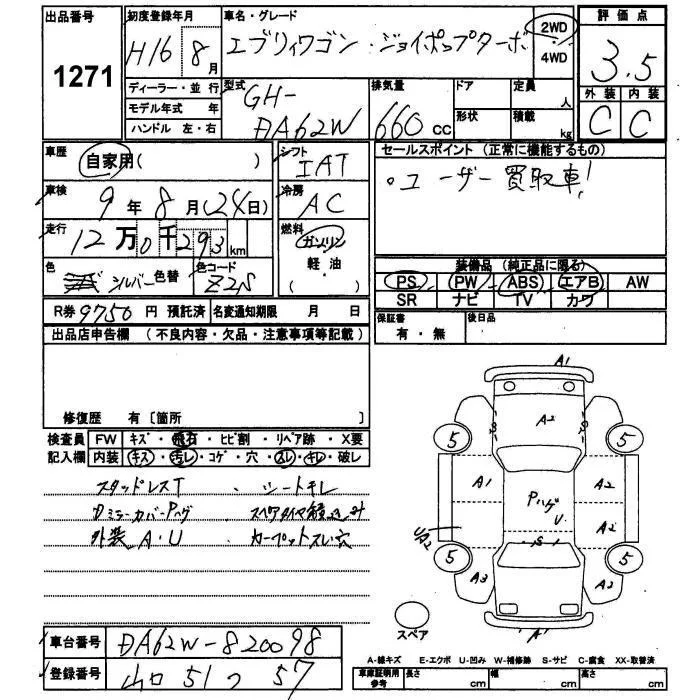 出品番号
1271
初度登録年月
H16 8月
ディーラー・並行
モデル年式 年
ハンドル 左・右
車名・グレード
エブリィワゴン・ジョイポップターボ
2WD
・
4WD
評価点
3.5
外装 内装
C C
型式
GH-
DA62W
排気量
660 cc
ドア
形状
定員
人
積載
kg
車歴
自家用( )
車検
9年8月(24日)
走行
12万0千293km
色
シルバー 色替
色コード
Z2S
シフト
IAT
冷房
AC
燃料
ガソリン
軽・油
( )
R券 9750円 預託済 名変通知期限 月 日
セールスポイント (正常に機能するもの)
。ユーザー買取車!
装備品 (純正品に限る)
PS PW ABS エアB AW
SR ナビ TV カワ
保証書
有・無
後日品
出品店申告欄 (不良内容・欠品・注意事項等記載)
修復歴 有〔箇所 〕
検査員 FW キズ・飛石・ヒビ割・リペア跡・X要
記入欄 内装 キズ・汚レ・コゲ・穴・スレ・キレ・破レ
スタッドレスT ・シートキレ
DミラーカバーPハゲ
外装 A・U カーペットスレ穴
A1
A2
S
S
5
5
A1
A2
Pハゲ
U
A2
S
UA2
5
5
A3
A2
A1
スペア
車台番号 DA62W-820098
登録番号 山口 51 つ 57
A-線キズ E-エクボ U-凹み W-補修跡 S-サビ C-腐食 XX-取替済
車庫証明用
参考
長さ cm 幅 cm 高さ cm